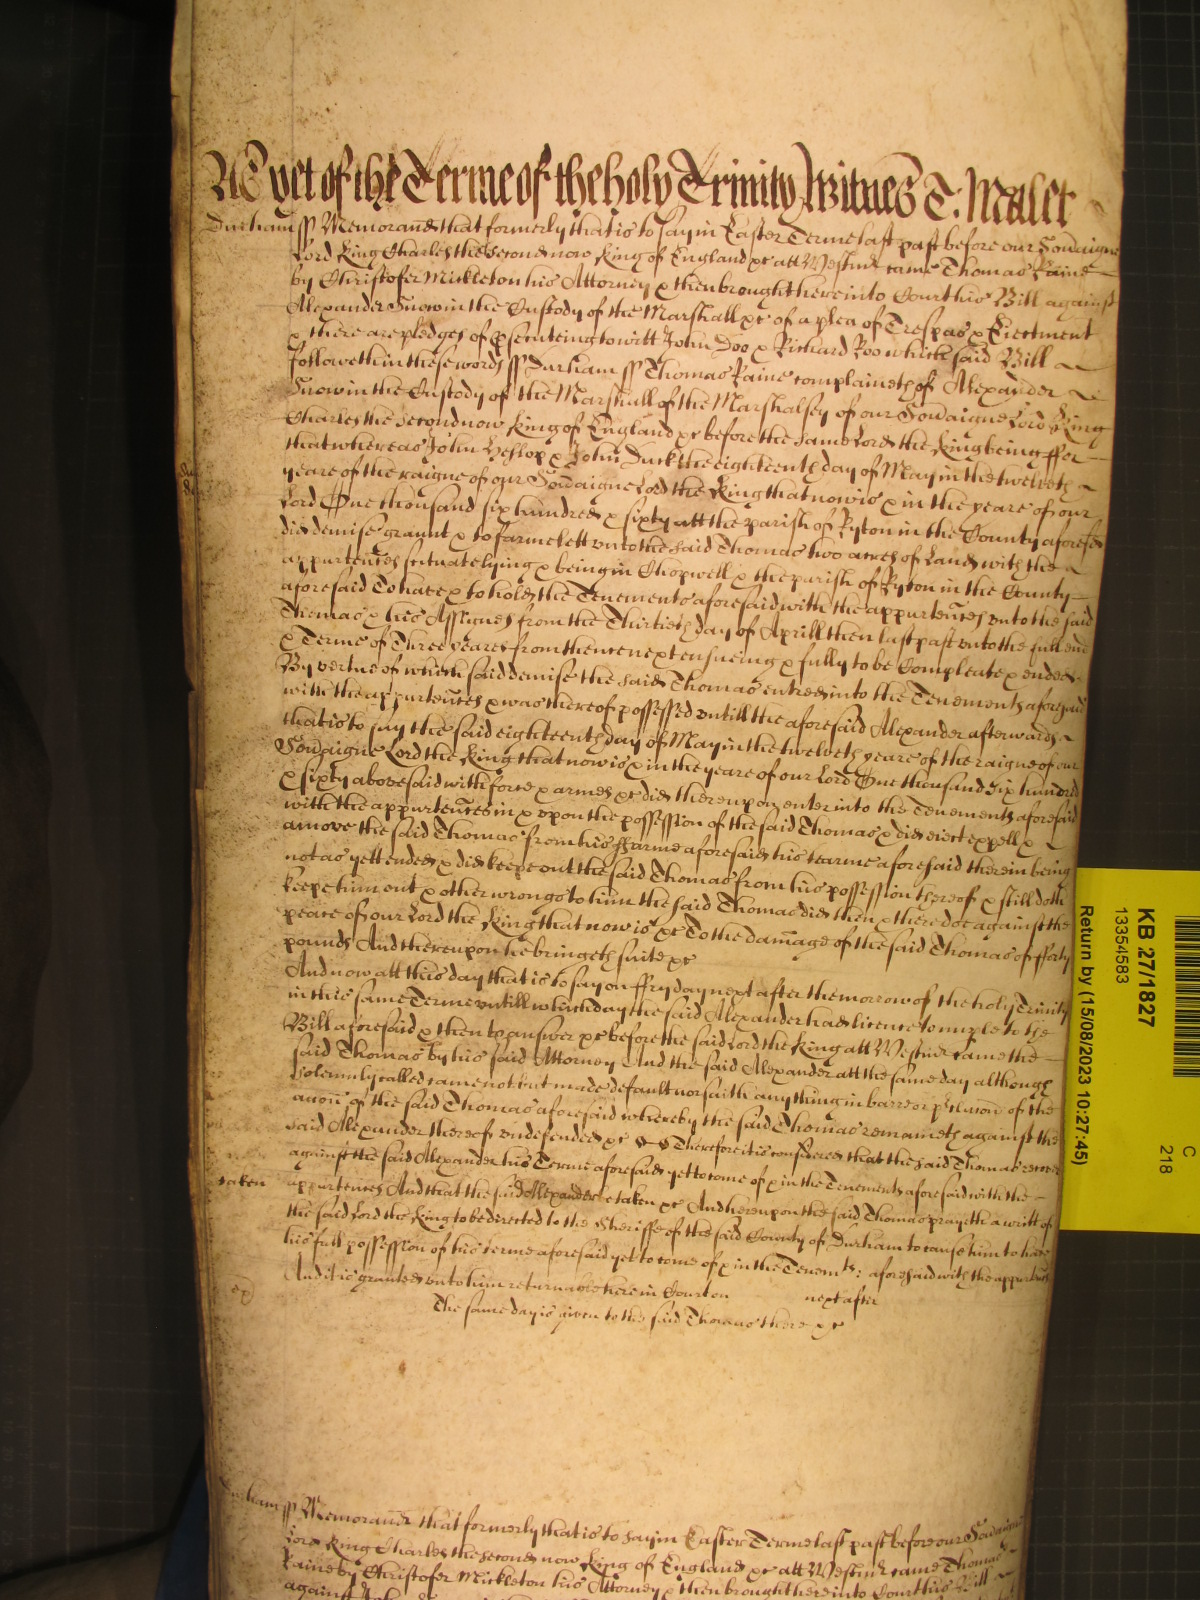 As yet of the Terme of the holy Trinity Witnes T. Malet
Durham ss Memorand that formerly that is to say in Easter Terme last past before our Soveraigne
Lord King Charles the Second now King of England &c att Westmr came Thomas Paine
by Christofer Mickleton his Attorney & then brought here into Court his Bill against
Alexander Snow in the Custody of the Marshall &c of a plea of Trespas & Eiectment
& there are pledges of prosecuteing to witt John Doo & Richard Roo which said Bill
followeth in these words ss Durham ss Thomas Paine complaineth of Alexander
Snow in the Custody of the Marshall of the Marshalsey of our Soveraigne Lord King
Charles the Second now King of England &c before the same Lord the King being ffor
that whereas John Heslop & John Turk the eighteenth day of May in the twelveth
yeare of the raigne of our Soveraigne Lord the King that now is & in the yeare of our
Lord One thousand six hundred & sixty att the parish of Ryton in the County aforesd
did demise graunt & to farme lett unto the said Thomas two acres of Land with the
appurtences scituate lying & being in Chopwell & the parish of Ryton in the County
aforesaid To have & to hold the Tenements aforesaid with the appurtences unto the said
Thomas & his Assignes from the Thirtieth day of Aprill then last past unto the full end
& Terme of Three yeares from thence next ensueing & fully to be Compleate & ended
By vertue of which said demise the said Thomas entred into the Tenements aforesaid
with the appurtences & was thereof possessed untill the aforesaid Alexander afterwards
that is to say the said eighteenth day of May in the twelveth yeare of the raigne of our
Soveraigne Lord the King that now is & in the yeare of our Lord One thousand six hundred
& sixty abovesaid with force & armes &c did thereupon enter into the Tenements aforesaid
with the appurtences in & upon the possession of the said Thomas & did eiect expell &
amove the said Thomas from his ffarme aforesaid his tearme aforesaid therein being
not as yett ended & did keepe out the said Thomas from his possession thereof & still doth
keepe him out & other wrongs to him the said Thomas did then & there doe against the
peace of our Lord the King that now is &c To the damage of the said Thomas of fforty
pounds And thereupon he bringeth suite &c
And now att this day that is to say on ffryday next after the morrow of the holy Trinity
in this same Terme untill which day the said Alexander had licence to imple to the
Bill aforesaid & then to answer &c before the said Lord the King att Westmr came the
said Thomas by his said Attorney And the said Alexander att the same day although
solemnly called came not but made default nor saith any thing in barre or p'clusion of the
accon of the said Thomas aforesaid whereby the said Thomas remaineth against the
said Alexander thereof undefended &c Therefore it is considered that the said Thomas recover
against the said Alexander his Terme aforesaid yet to come of & in the Tenements aforesaid with the
taken appurtences And that the said Alexander be taken &c And hereupon the said Thomas prayeth a writt of
the said Lord the King to be directed to the Sheriffe of the said County of Durham to cause him to have
his full possession of his terme aforesaid yet to come of & in the Tenemts: aforesaid with the appurtences
And it is granted unto him returnable here in Court on next after
The same day is given to the said Thomas there &c
Durham ss Memorand that formerly that is to say in Easter Terme last past before our Soveraigne
Lord King Charles the second now King of England &c att Westmr came Thomas
Paine by Christofer Mickleton his Attorney & then brought here into Court his Bill
against
KB 27/1827
13354583
Return by (15/08/2023 10:27:45)
C
218